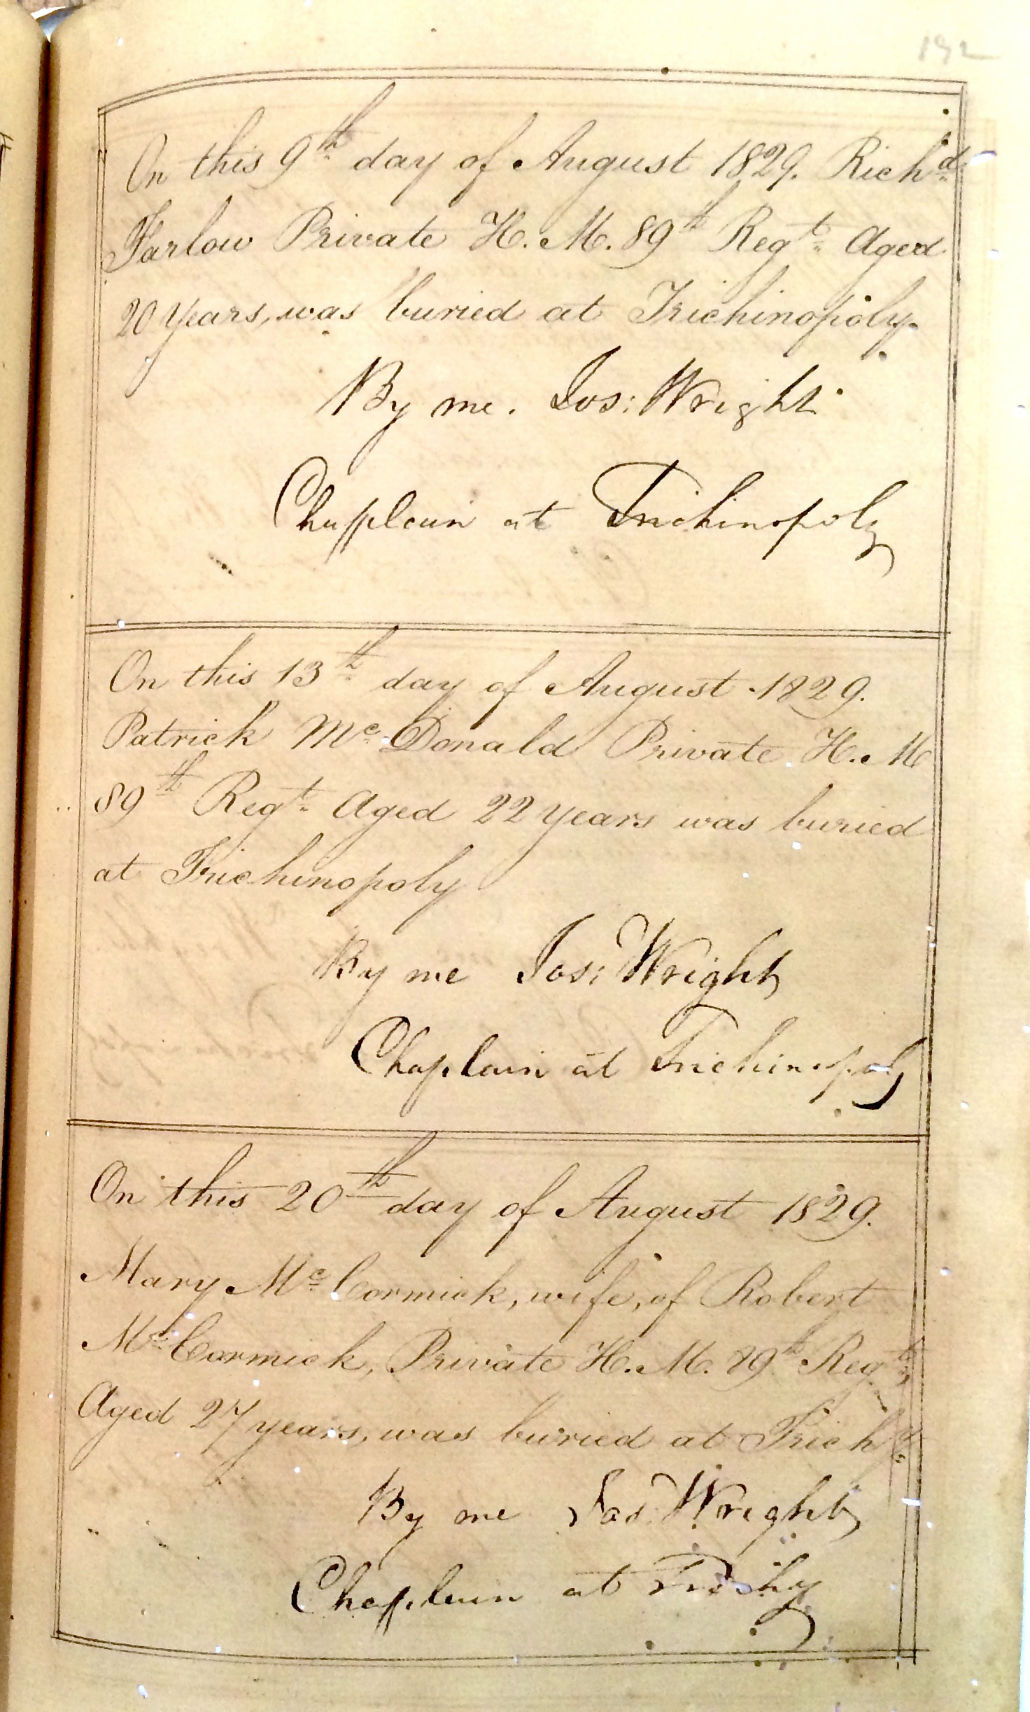 192
On this 9th day of August 1829. Richd.
Farlow Private H. M. 89th Regt. Aged
20 years, was buried at Trichinopoly.
By me. Jos: Wright
Chaplain at Trichinopoly
On this 13th day of August 1829.
Patrick Mc Donald Private H. M
89th Regt. Aged 22 years was buried
at Trichinopoly
By me Jos: Wright
Chaplain at Trichinopoly
On this 20th day of August 1829.
Mary Mc Cormick, wife, of Robert
Mc Cormick, Private H. M. 89th Regt,
Aged 27 years, was buried at Trich
By me Jos. Wright
Chaplain at Trichy